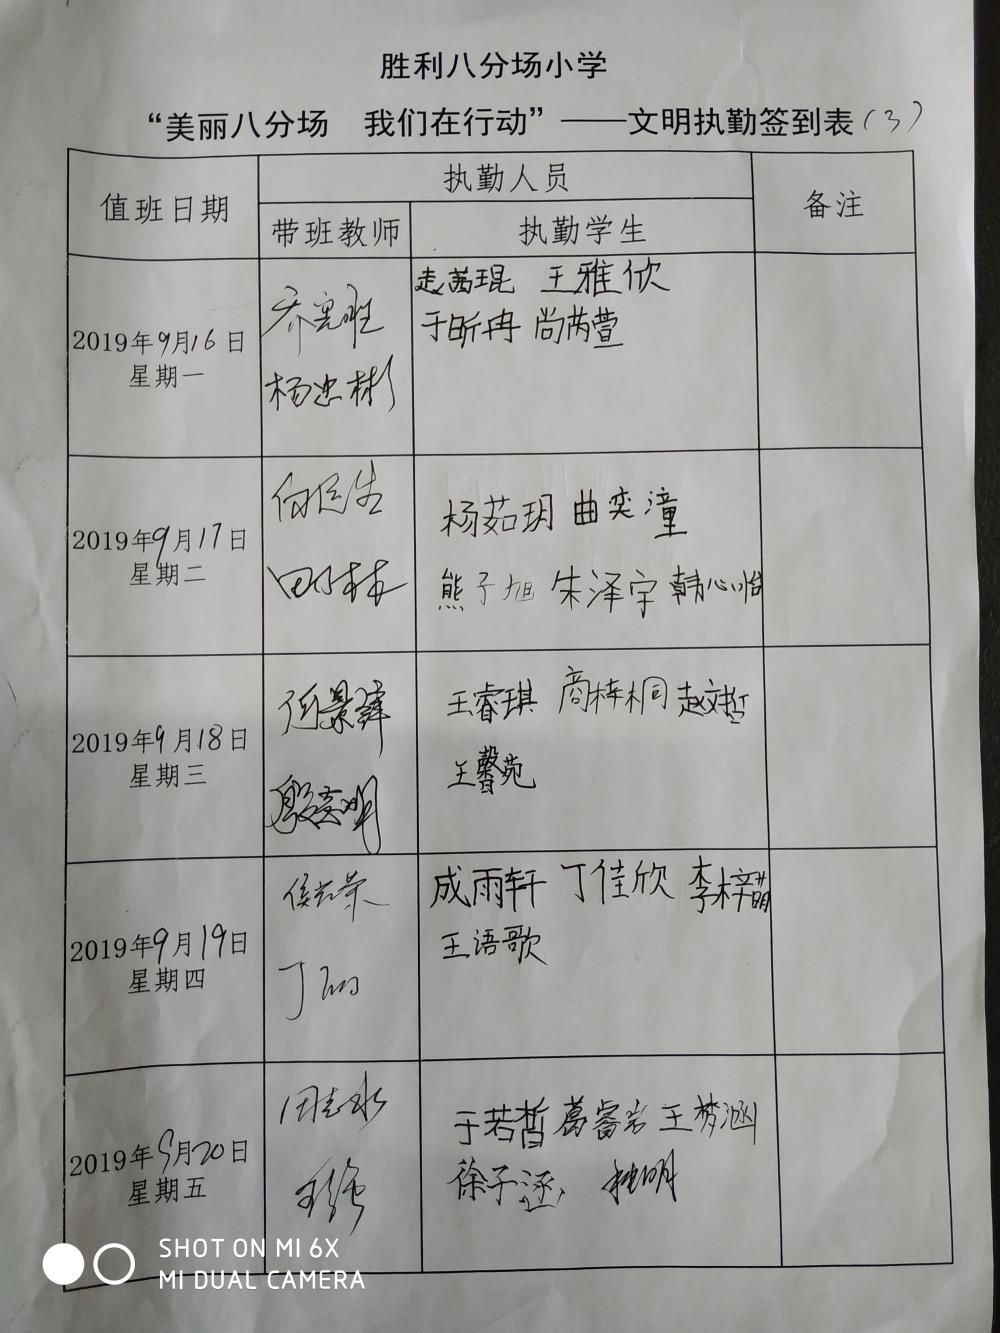 胜利八分场小学
“美丽八分场 我们在行动”——文明执勤签到表(3)
值班日期 执勤人员 备注
带班教师 执勤学生
2019年9月16日
星期一
杨忠彬
赵茜琨 王雅欣
于昕冉 尚芮萱
2019年9月17日
星期二
杨茹玥 曲奕潼
熊子旭 朱泽宇 韩心怡
2019年9月18日
星期三
王睿琪 商梓桐 赵文哲
王馨苑
2019年9月19日
星期四
丁
成雨轩 丁佳欣 李梓萌
王语歌
2019年9月20日
星期五
田志永
于若皙 葛睿岩 王梦涵
徐子涵
SHOT ON MI 6X
MI DUAL CAMERA